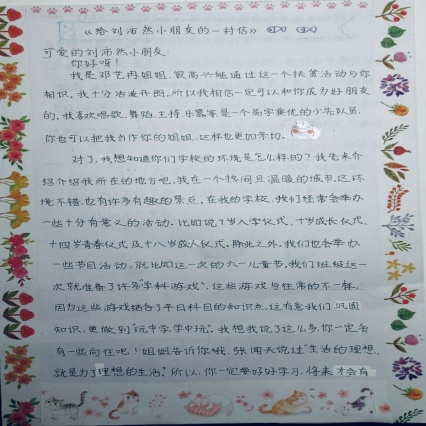 《给刘沛然小朋友的一封信》
可爱的刘沛然小朋友:
你好呀!
我是邓艺冉姐姐,很高兴地通过这一个扶贫活动与你
相识。我十分活泼开朗,所以我相信一定可以和你成为好朋友
的。我喜欢唱歌、舞蹈、主持、乐器,是一个品学兼优的少先队员,
你也可以把我当作你的姐姐,这样也更加亲切。
对了,我想知道你们学校的环境是怎么样的?我先来介
绍介绍我所在的地方吧。我在一个热闹且温暖的城市,这环
境不错,也有许多有趣的景点。在我的学校,我们经常会举办
一些十分有意义的活动。比如说7岁入学仪式、十岁成长仪式、
十四岁青春仪式及十八岁成人仪式。除此之外,我们也会举办
一些节目活动,就比如这一次的六一儿童节。我们班级这一
次就准备了许多"学科游戏"。这些游戏与往常的不一样。
因为这些游戏结合了平日科目的知识点,这有意我们巩固
知识,更做到"玩中学,学中玩"。我想我说了这么多,你一定会
有一些向往吧!姐姐告诉你哦,张闻天说过"生活的理想,
就是为了理想的生活。"所以,你一定要好好学习,将来才会有